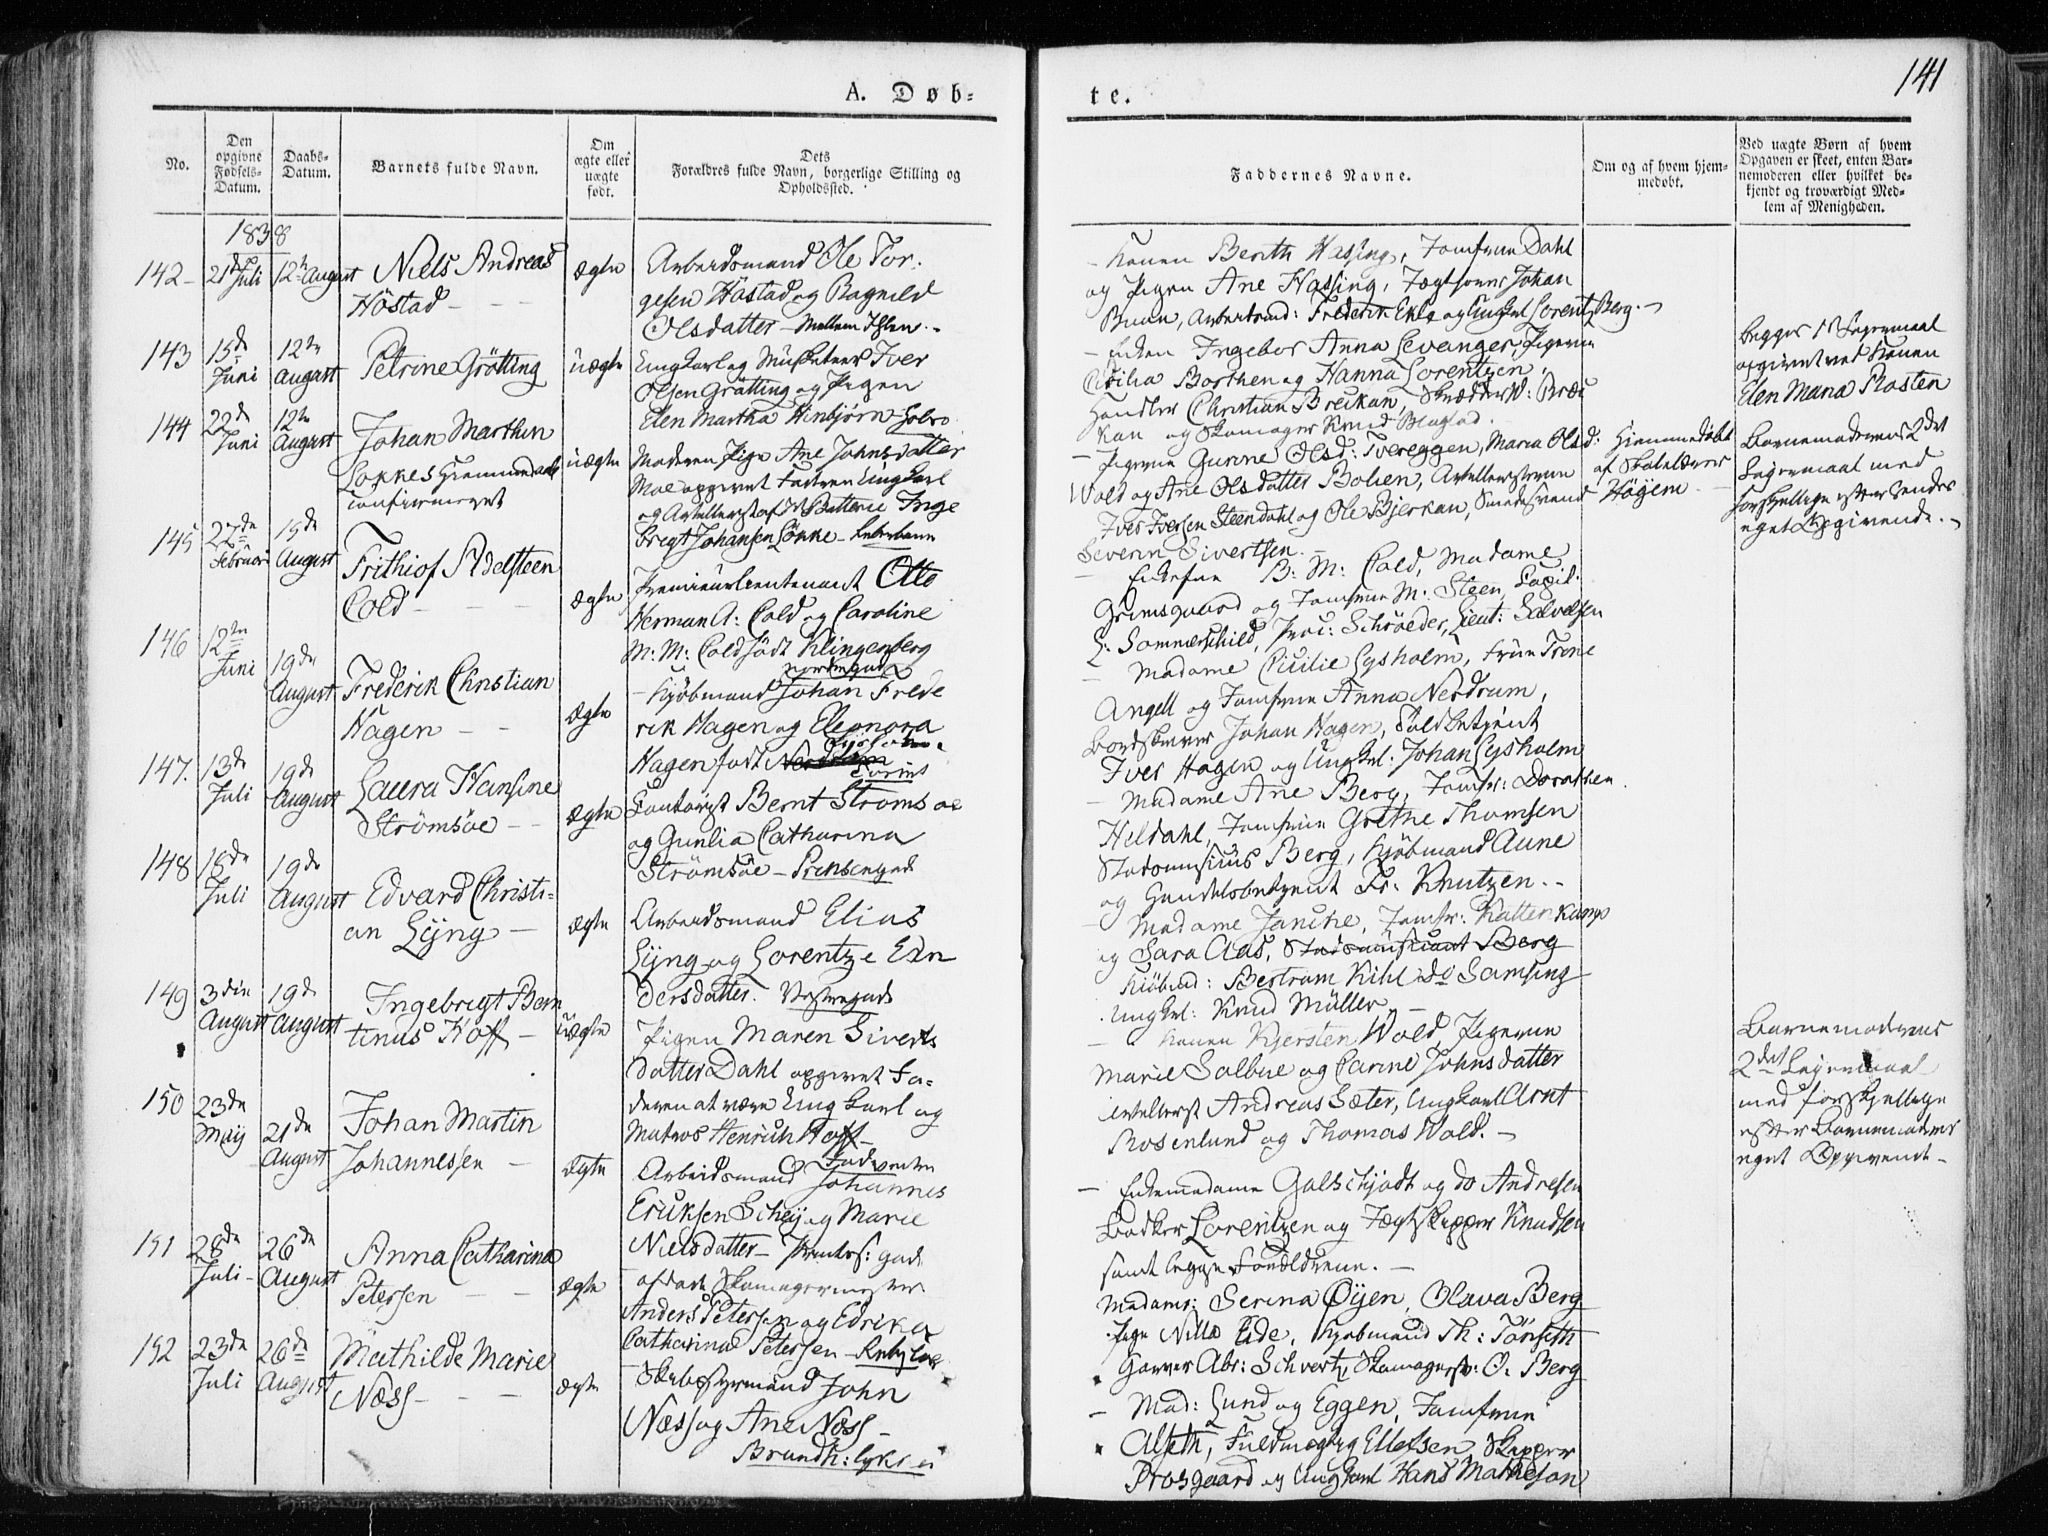 141
A. Døb-
te.
No.
Den
opgivne
Fødsels-
Datum.
Daabs-
Datum.
Barnets fulde Navn.
Om
ægte eller
uægte
født.
Dets
Forældres fulde Navn, borgerlige Stilling og
Opholdssted.
Faddernes Navne.
Om og af hvem hjem-
medøbt.
Ved uægte Børn af hvem
Opgaven er skeet, enten Bar-
nemoderen eller hvilket be-
kjendt og troværdigt Med-
lem af Menigheden.
1838
142
21de Juli
12te August
Niels Andreas
Höstad
ægte
Arbeidsmand Ole Tor-
gesen Höstad og Ragnild
Olsdatter
Konen Berith Hassing, Jomfrue Dahl
og Pigen Ane Hassing, Johan
Buan, Frederik Ekle og Ungkrl Lorentz Berg.
143
15de
Juni
12te
August
Petrine Grötting
uægte
Ungkarl og Musketeer Iver
Olsen Grötting og Pigen
Elen Martha Hinbjörn
Enken Ingebor Anna Levanger, Pigerne
Cicilia Borthen og Hanna Lorentzen,
Handler Christian Breikan,
kan og Skomager Knud
Begges 1ste Leiermaal
opgivet ved Konen
Elen Maria Rosten
144
22de
Juni
12te
August
Johan Marthin
Løkkes Hjemmedaab
confirmeret
uægte
Moderen Pige Ane Johnsdatter
Moe opgivet Faderen Ungkarl
og Artellerist af Batterie Inge
bregt Johansen Løkke
Pigerne Gurine Olsd: Tvereggen, Maria Olsd:
Wold og Ane Olsdatter Bolien,
Iver Iversen Steendahl og Ole Bjerkan, Smedesvend
Severin Sivertsen.
Hjemmedøbt
af Skolelærer
Höyem
Barnemoderens 2det
Leiermaal med
forskjellige efter hendes
eget Opgivende.
145
27de
Februar
15de
August
Frithiof Adelsteen
Cold
ægte
Premieurlieutenant Otto
Herman A: Cold og Caroline
M: M: Cold født Klingenberg
Enkefrue B: M: Cold, Madame
Grimsgaard og Jomfrue M: Steen, Capit:
L: Sommerschild, Proc: Schrøeder, Lieut:
146
12te
Juni
19de
August
Frederik Christian
Hagen
ægte
Kjøbmand Johan Frede
rik Hagen og Eleonora
Hagen født
Madame Cicilie Lysholm, Frue Trone
Angell og Jomfrue Anna Nerdrum,
Johan Hagen, Toldbetjent
Iver Hagen og Ungkrl: Johan Lysholm
147.
13de
Juli
19de
August
Laura Hansine
Strömsöe
ægte
Contorist Bernt Stromsöe
og Gunlia Catharina
Strömsöe - Prinsensgade
Madame Ane Berg, Jomfr: Dorothea
Heldahl, Jomfrue Grethe Thomsen
Stadsmusicus Berg, Kjöbmand Aune
og Handelsbetjent Fr: Knutzen.
148
18de
Juli
19de
August
Edvard Christi-
an Lÿng
ægte
Arbeidsmand Elias
Lÿng og Lorentze Eln
dersdatter.
Madame Janche, Jomfr: Kattenkamp
og Sara Aas, Stadsmusicant Berg
Kiöbmd: Bertram Kihl do Samsing
Ungkrl: Knud Müller
149
3die
August
19de
August
Ingebrigt Bern
tinus Hoff
uægte
Pigen Maren Siverts
datter Dahl opgivet Fa-
deren at være Ungkarl og
Matros Henrich Hoff
Konen Kjersten Wold, Pigerne
Marie Solbue og Carine Johnsdatter
Artellerist Andreas Sæter, Ungkarl Arnt
Rosenlund og Thomas Wold.
Barnemoderens
2det Leiermaal
med forskjellige
efter Barnemoders
eget Opgivende
150
23de
May
21de
August
Johan Martin
Johannessen
ægte
Arbeidsmand Johannes
Eriksen Scheij og Marie
Nielsdatter
Enkemadame Galschjødt og do Andresen
Bødker Lorentzen og Jægtskipper Knudsen
samt begge Forældrene.
151
28de
Juli
26de
August
Anna Catharina
Petersen
ægte
afdøde Skomagermester
Anders Petersen og Edrika
Catharina Petersen
Madame: Serina Öijen, Olava Berg
Pige Nilla Eide, Kjøbmand Th: Tönseth
Garver Abr: Schvertz, Skomagersv: O. Berg
152
23de
Juli
26de
August
Mathilde Marie
Næss
ægte
Skibsstyrmand John
Næss og Ane Næss
Mad: Lund og Eggen, Jomfrue
Alseth, Fuldmægtig Ellefsen, Skipper
Prosgaard og Ungkarl Hans Matheson